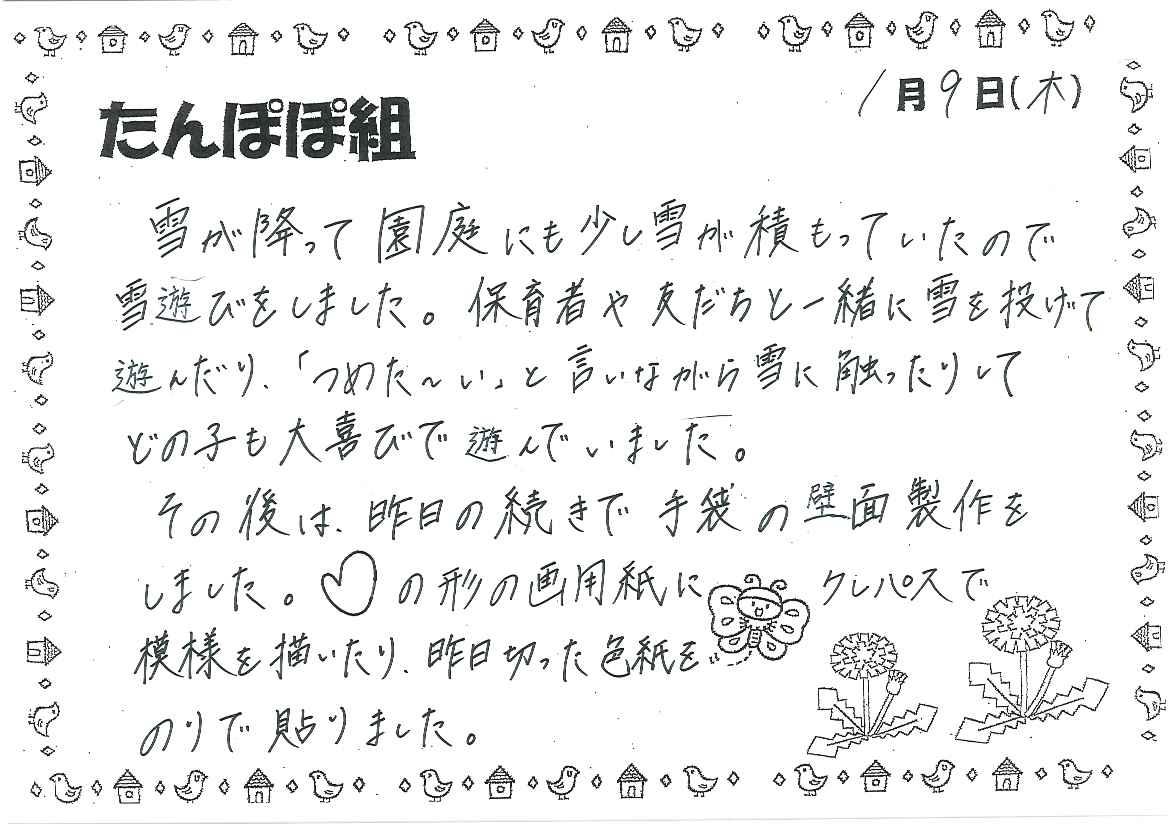 1月9日(木)
たんぽぽ組
雪が降って園庭にも少し雪が積もっていたので
雪遊びをしました。保育者や友だちと一緒に雪を投げて
遊んだり、「つめた～い」と言いながら雪に触ったりして
どの子も大喜びで遊んでいました。
その後は、昨日の続きで手袋の壁面製作を
しました。♡の形の画用紙にクレパスで
模様を描いたり、昨日切った色紙を
のりで貼りました。